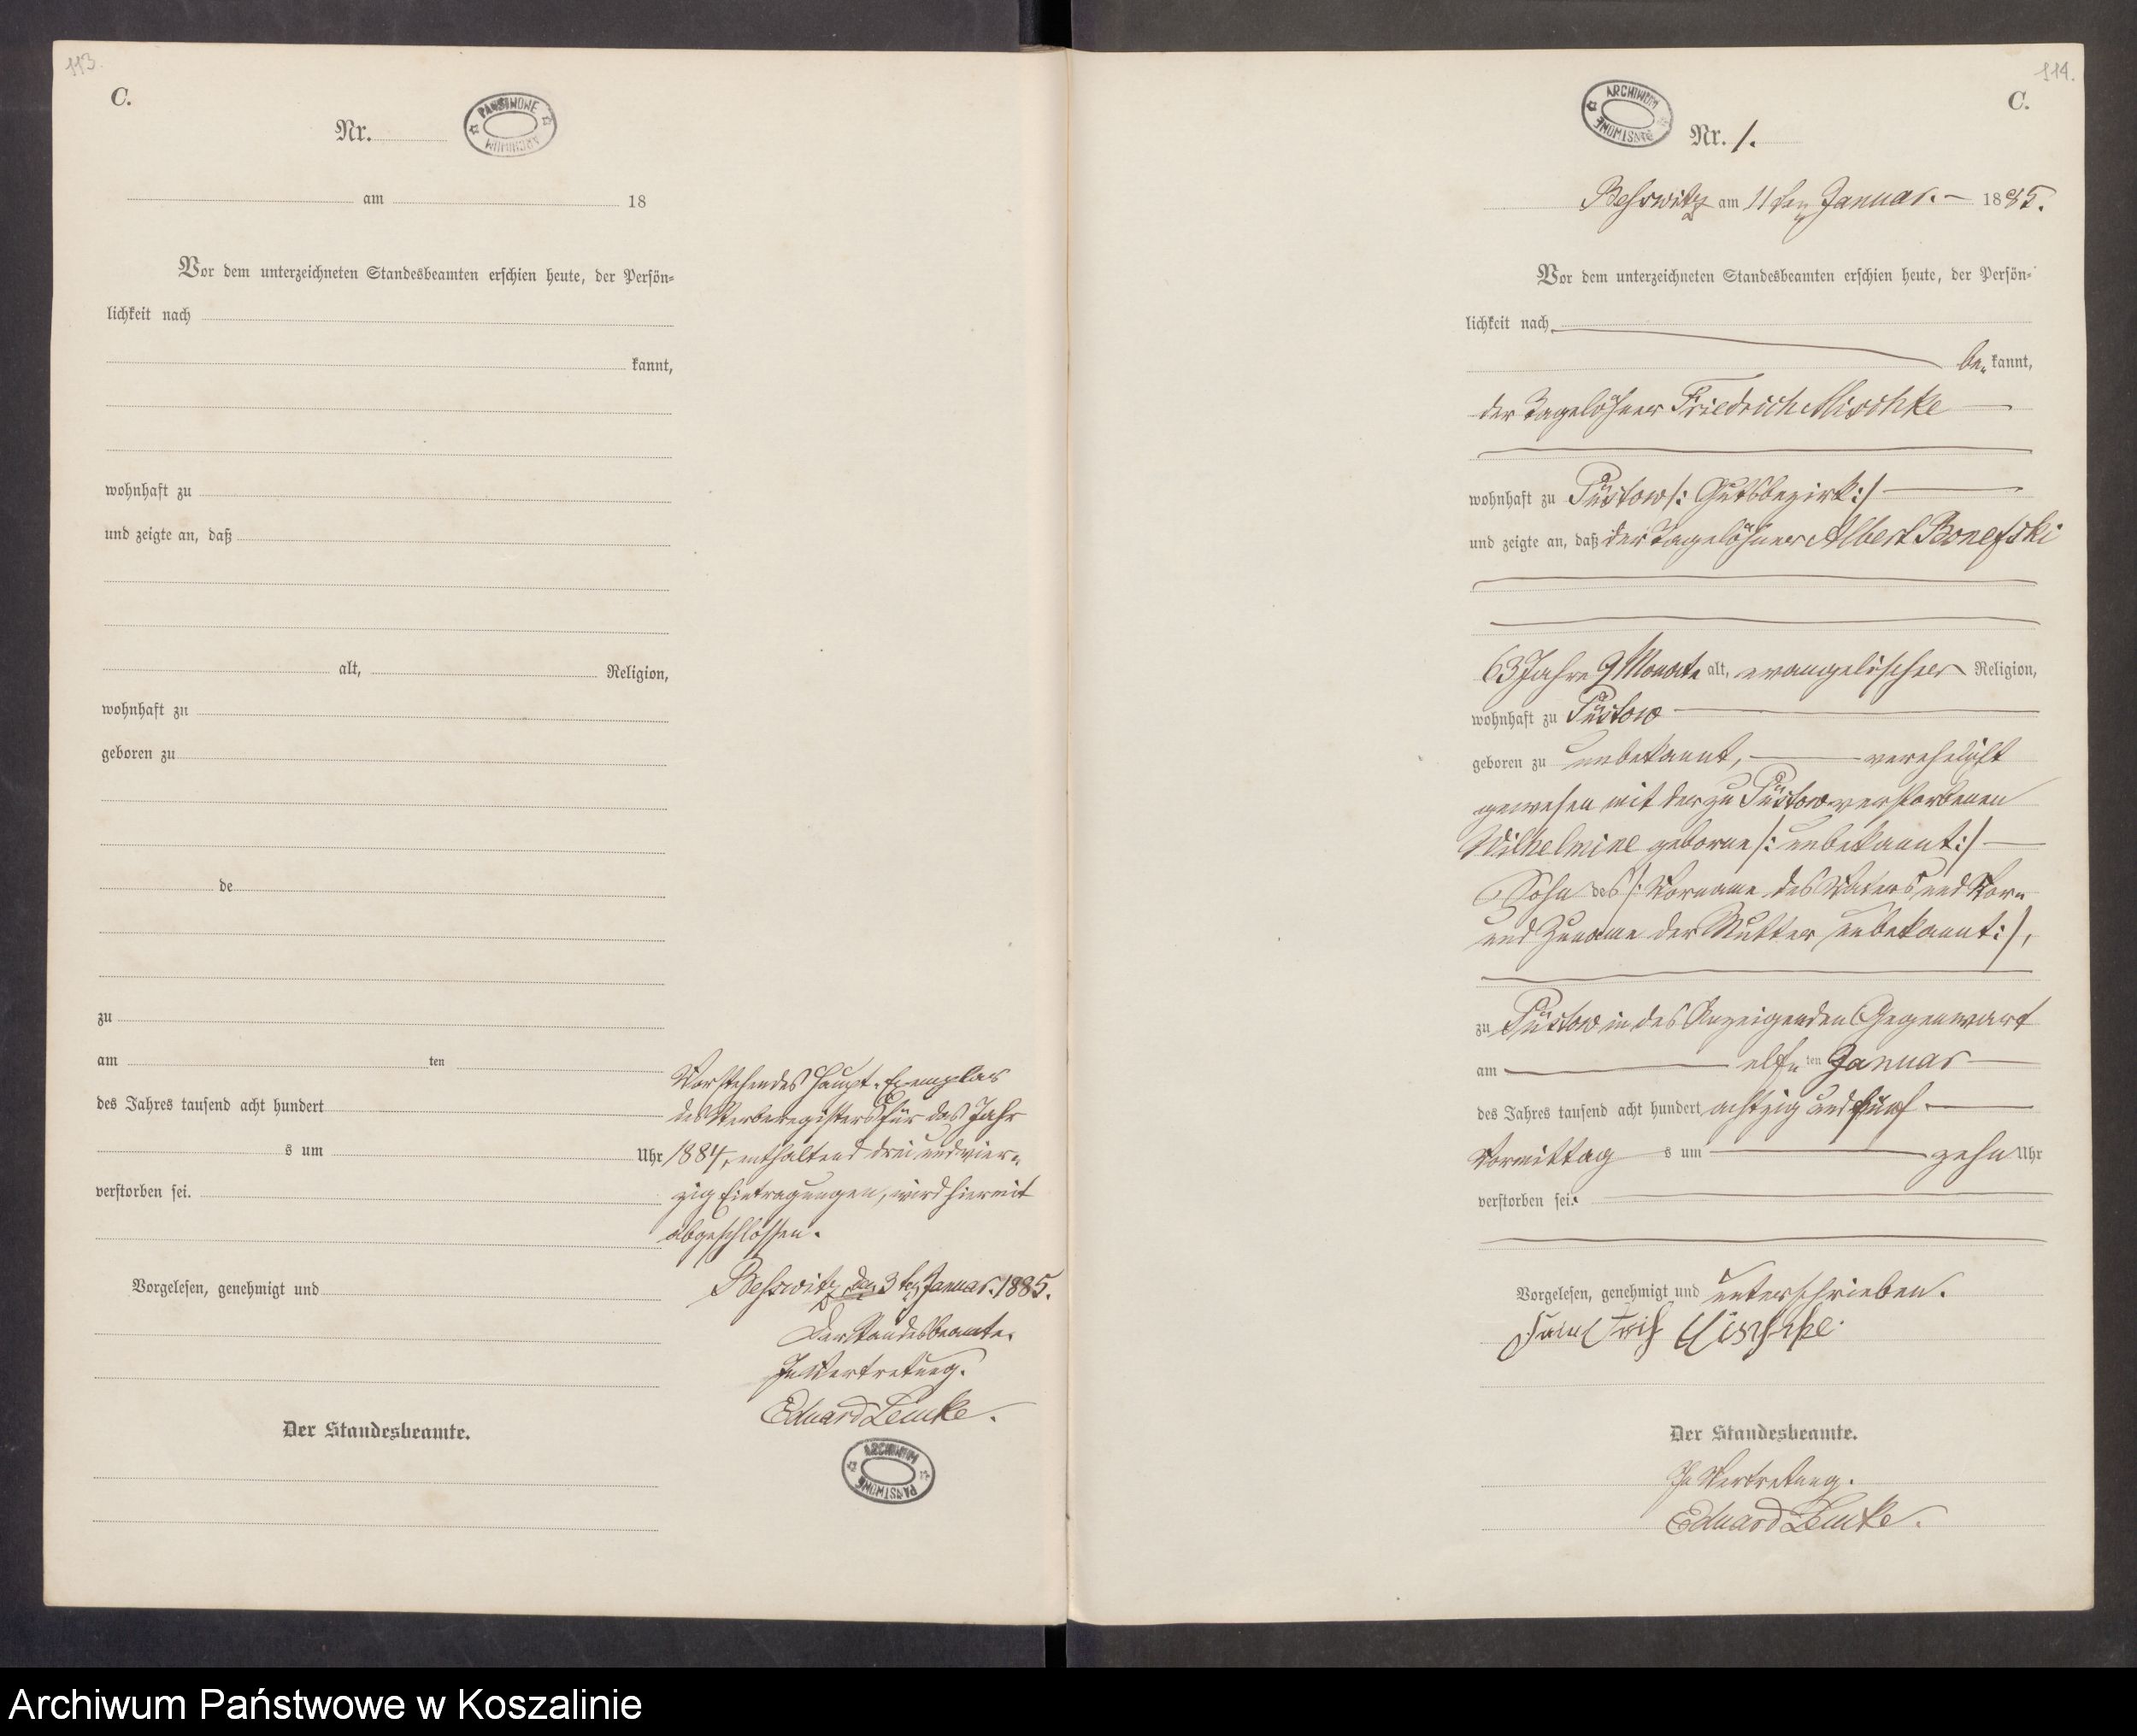 113.
C.
Nr.
PAŃSTWOWE ARCHIWUM
am 18
Vor dem unterzeichneten Standesbeamten erschien heute, der Persön-
lichkeit nach
kannt,
wohnhaft zu
und zeigte an, daß
alt, Religion,
wohnhaft zu
geboren zu
de
zu
am ten
des Jahres tausend acht hundert
s um Uhr
verstorben sei.
Vorgelesen, genehmigt und
Der Standesbeamte.
Vorstehendes Haupt-Exemplar
des Sterberegisters für das Jahr
1884, enthaltend drei und vier-
zig Eintragungen, wird hiermit
abgeschlossen.
Beßwitz, den 3ten Januar. 1885.
Der Standesbeamte.
In Vertretung.
Eduard Lemke.
ARCHIWUM PAŃSTWOWE
114.
C.
ARCHIWUM PAŃSTWOWE
Nr. 1.
Beßwitz am 11ten Januar. 1885.
Vor dem unterzeichneten Standesbeamten erschien heute, der Persön-
lichkeit nach
be-kannt,
der Tagelöhner Friedrich Mischke
wohnhaft zu Püstow /: Gutsbezirk :/
und zeigte an, daß der Tagelöhner Albert
63 Jahre 9 Monate alt, evangelischer Religion,
wohnhaft zu Püstow
geboren zu unbekannt, verehelicht
gewesen mit der zu Püstow verstorbenen
Wilhelmine geborne /: unbekannt :/
Sohn des /: Vorname des Vaters und Vor-
und Zuname der Mutter unbekannt :/,
zu Püstow in des Anzeigenden Gegenwart
am elf-ten Januar
des Jahres tausend acht hundert achtzig und fünf
Vormittags um zehn Uhr
verstorben sei.
Vorgelesen, genehmigt und unterschrieben.
Der Standesbeamte.
In Vertretung.
Eduard Lemke.
Archiwum Państwowe w Koszalinie